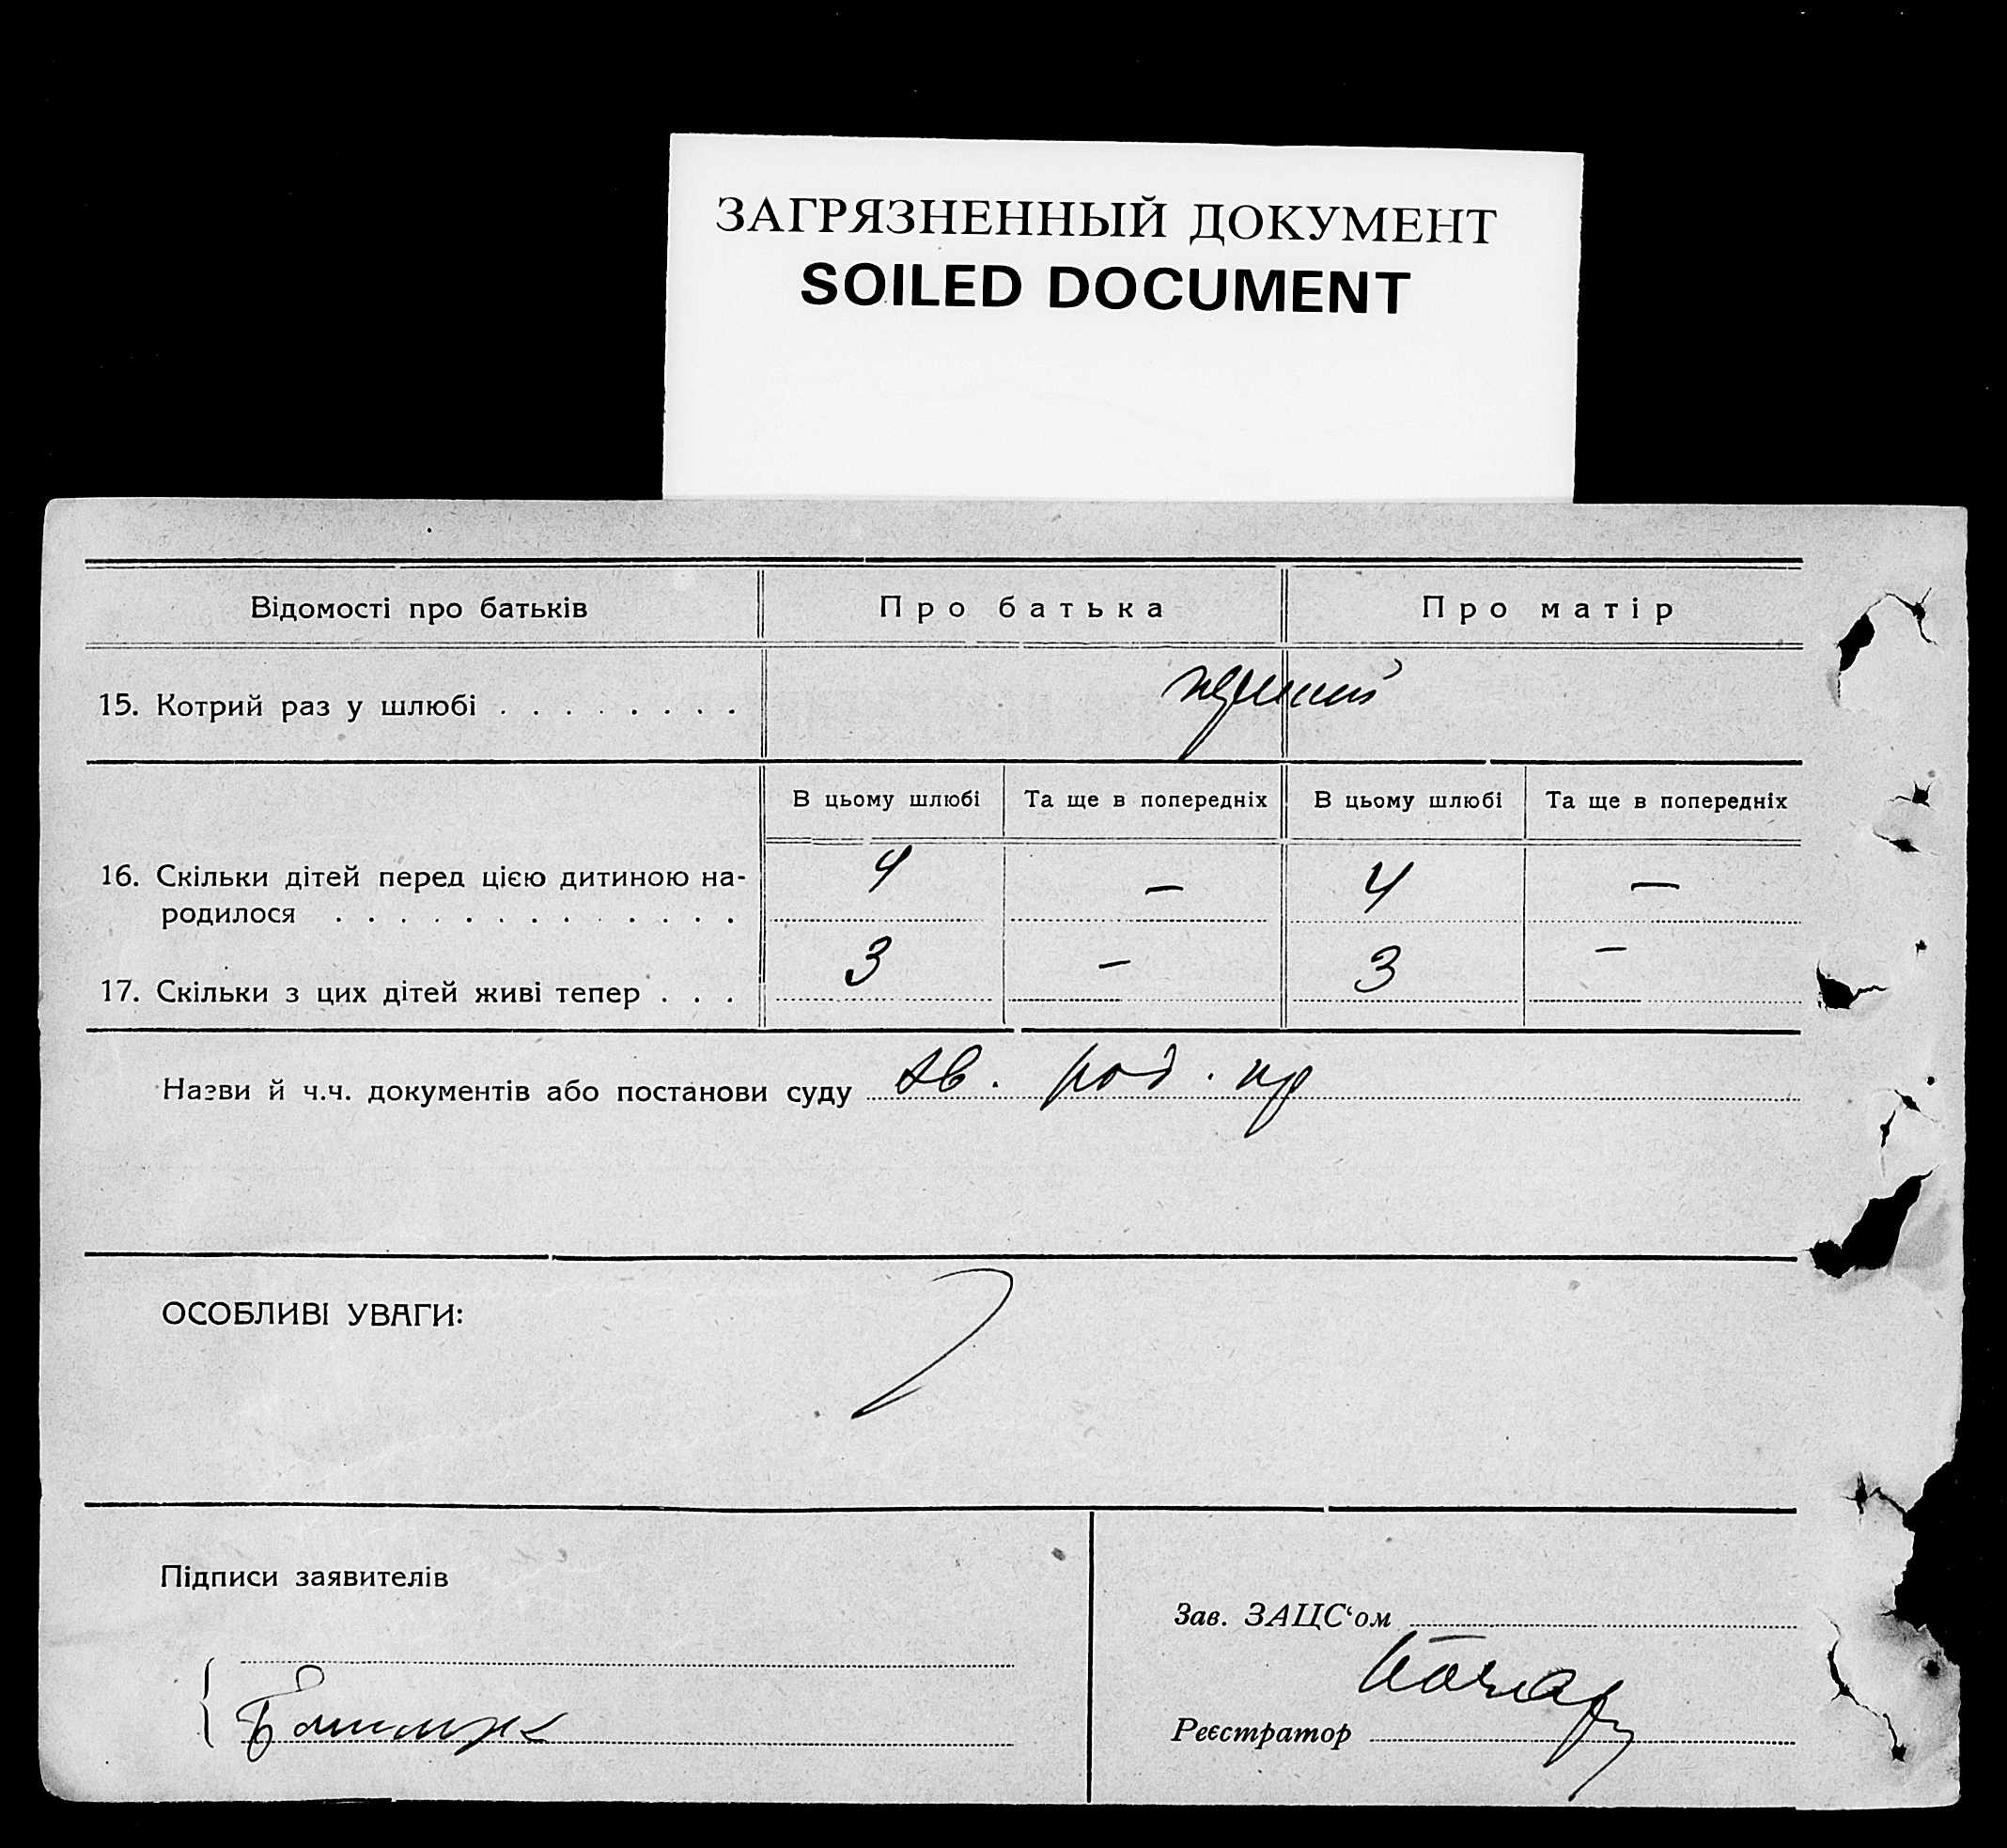 ЗАГРЯЗНЕННЫЙ ДОКУМЕНТ
SOILED DOCUMENT
Відомості про батьків Про батька Про матір
15. Котрий раз у шлюбі . . . . . . . .
В цьому шлюбі Та ще в попередніх В цьому шлюбі Та ще в попередніх
16. Скільки дітей перед цією дитиною на-
родилося . . . . . . . . . . . . . 4 — 4 —
17. Скільки з цих дітей живі тепер . . . 3 — 3 —
Назви й ч.ч. документів або постанови суду
ОСОБЛИВІ УВАГИ:
Підписи заявителів
Зав. ЗАЦС‘ом
Реєстратор